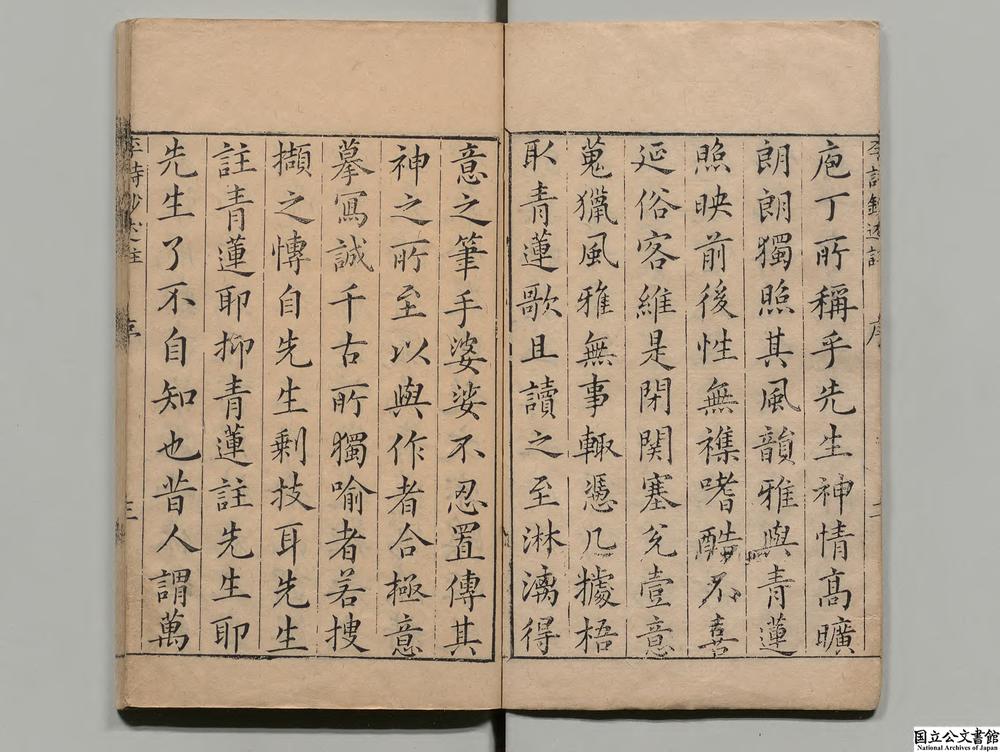 庖丁所稱乎先生神情高曠
朗朗獨照其風韻雅與青蓮
照映前後性無襍嗜酷不喜
延俗客維是閉関塞兌壹意
蒐獵風雅無事輙凴几據梧
取青蓮歌且讀之至淋漓得
意之筆手婆娑不忍置傳其
神之所至以與作者合極意
摹寫誠千古所獨喻者若捜
擷之慱自先生剩技耳先生
註青蓮耶抑青蓮註先生耶
先生了不自知也昔人謂萬
李詩鈔述註
序
三
国立公文書館
National Archives of Japan